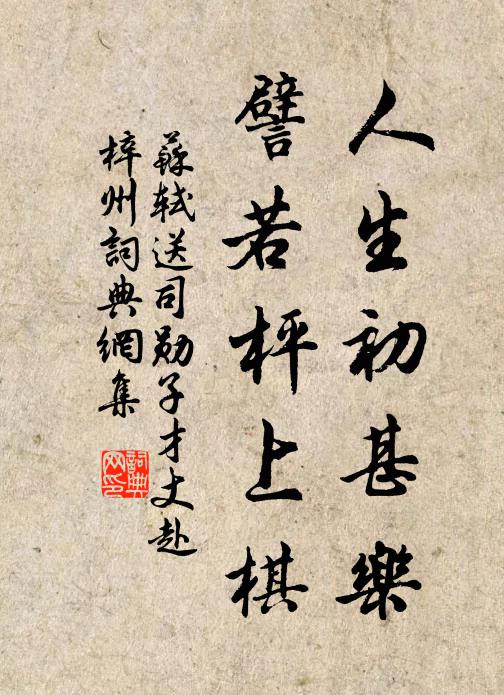 人生初甚樂
譬若枰上棋
蘇軾送司勛子才丈赴
梓州詞典網集
詞典網印